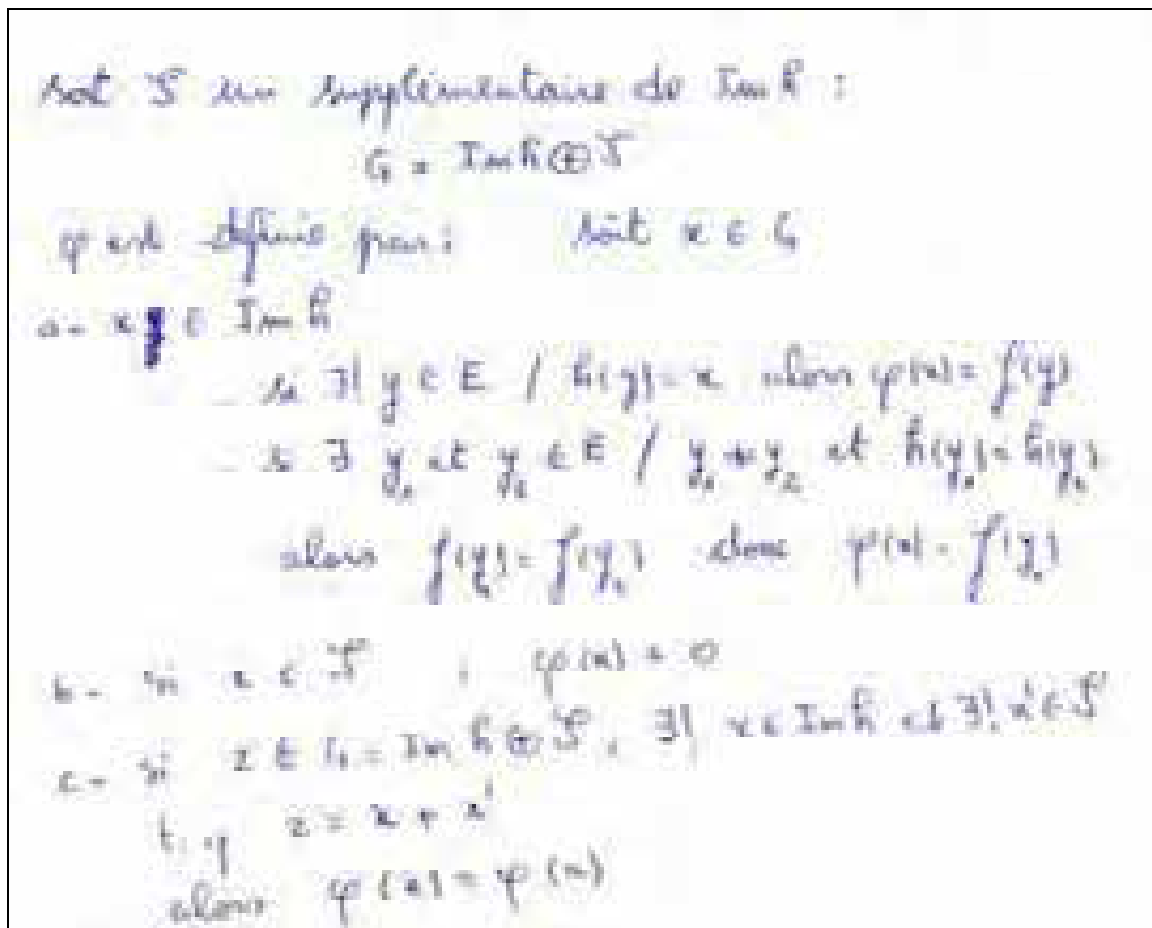 soit S un supplémentaire de Im h :
G = Im h ⊕ S
φ est définie par : soit x ∈ G
a- x ∈ Im h
- si ∃! y ∈ E / h(y) = x alors φ(x) = f(y)
- si ∃ y₁ et y₂ ∈ E / y₁ ≠ y₂ et h(y₁) = h(y₂)
alors f(y₁) = f(y₂) donc φ(x) = f(y₁)
b- si x ∈ S , φ(x) = 0
c- si z ∈ G = Im h ⊕ S, ∃! x ∈ Im h et ∃! x' ∈ S
t.q z = x + x'
alors φ(z) = φ(x)